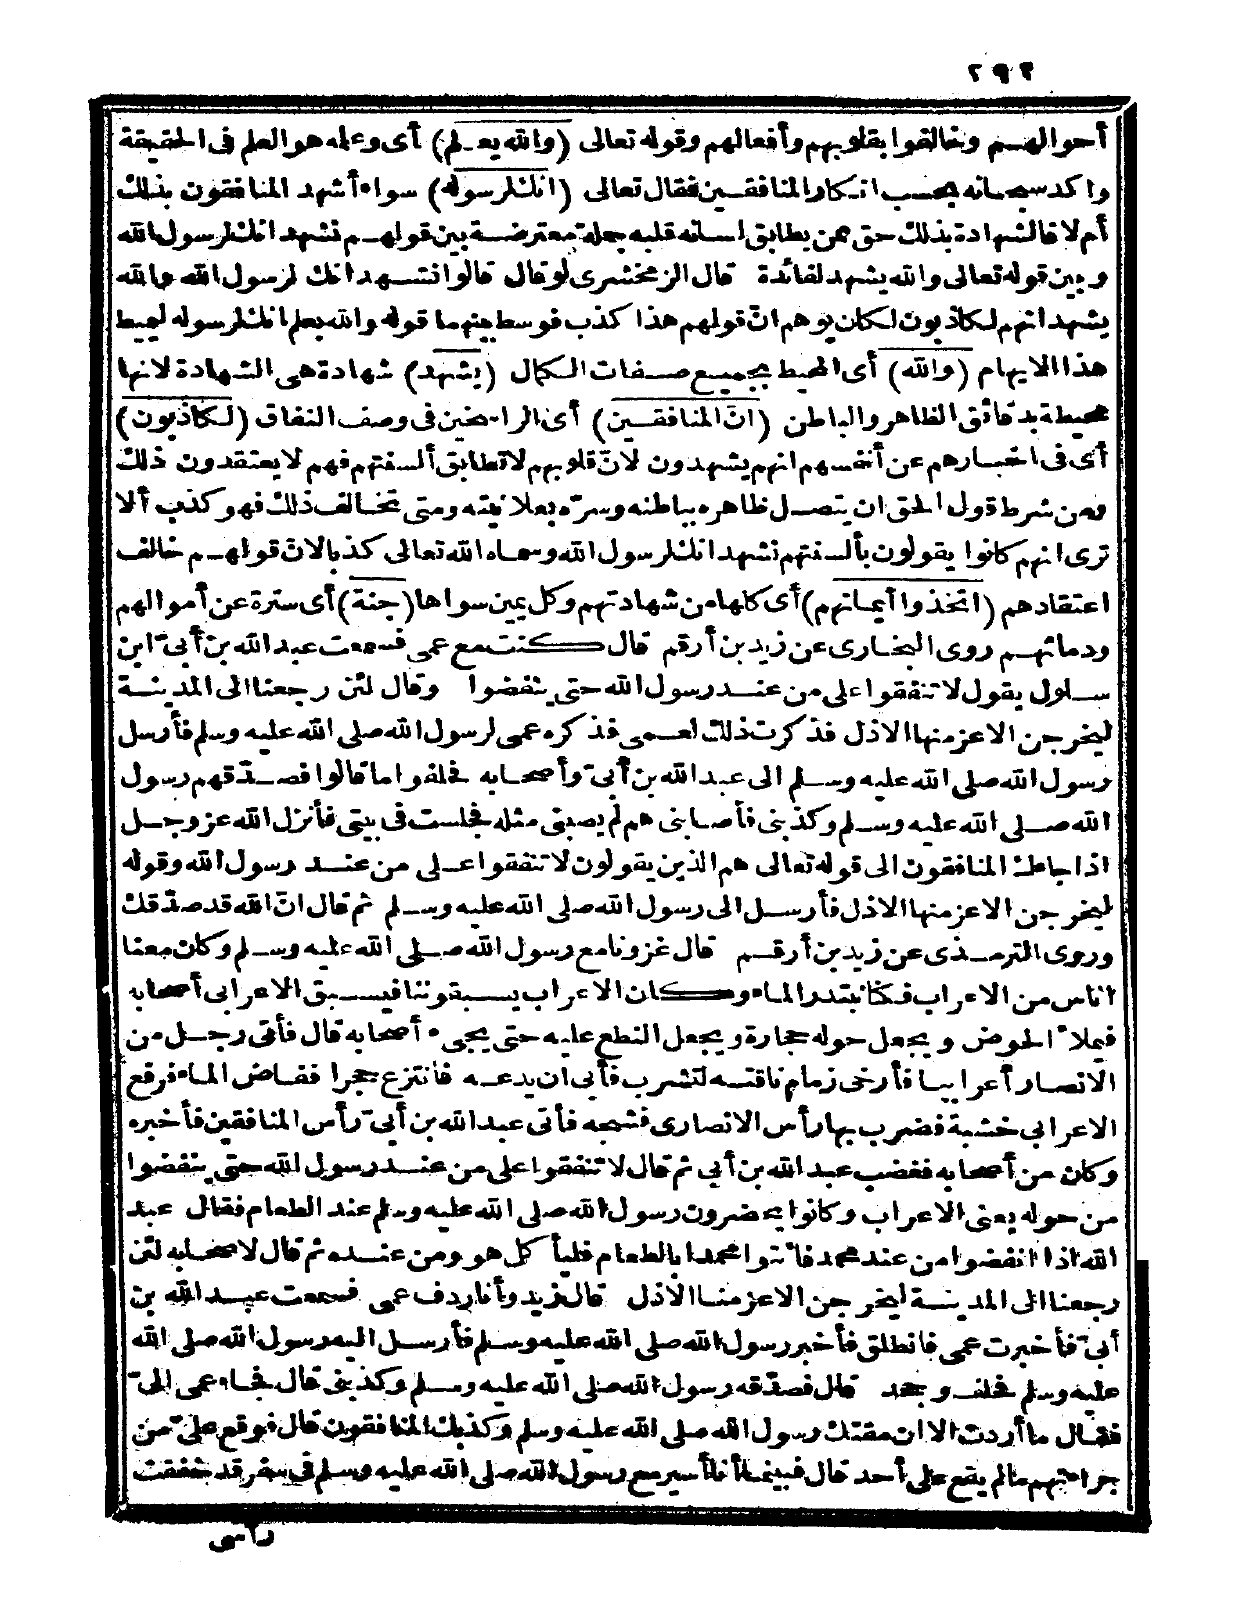 ٢٩٢
أحوالهم وخالفوا بقلوبهم وأفعالهم وقوله تعالى (والله يعلم) أى وعلمه هو العلم فى الحقيقة
وأكد سبحانه بحسب انكار المنافقين فقال تعالى (انك لرسوله) سواء أشهد المنافقون بذلك
أم لا فالشهادة بذلك حق ممن يطابق لسانه قلبه جملة معترضة بين قولهم نشهد انك لرسول الله
وبين قوله تعالى والله يشهد لفائدة قال الزمخشرى لو قال قالوا نشهد انك لرسول الله والله
يشهد انهم لكاذبون لكان يوهم انّ قولهم هذا كذب فوسط بينهما قوله والله يعلم انك لرسوله ليميط
هذا الايهام (والله) أى المحيط بجميع صفات الكمال (يشهد) شهادة هى الشهادة لانها
محيطة بدقائق الظاهر والباطن (انّ المنافقين) أى الراسخين فى وصف النفاق (لكاذبون)
أى فى اخبارهم عن أنفسهم انهم يشهدون لانّ قلوبهم لا تطابق ألسنتهم فهم لا يعتقدون ذلك
ومن شرط قول الحق ان يتصل ظاهره بباطنه وسرّه بعلانيته ومتى تخالف ذلك فهو كذب ألا
ترى انهم كانوا يقولون بألسنتهم نشهد انك لرسول الله وسماه الله تعالى كذبا لانّ قولهم خالف
اعتقادهم (اتخذوا أيمانهم) أى كلها من شهادتهم وكل يمين سواها (جنة) أى سترة عن أموالهم
ودمائهم روى البخارى عن زيد بن أرقم قال كنت مع عمى فسمعت عبد الله بن أبىّ ابن
سلول يقول لا تنفقوا على من عند رسول الله حتى ينفضوا وقال لئن رجعنا الى المدينة
ليخرجن الاعز منها الاذل فذكرت ذلك لعمى فذكره عمى لرسول الله صلى الله عليه وسلم فأرسل
رسول الله صلى الله عليه وسلم الى عبد الله بن أبىّ وأصحابه فحلفوا ما قالوا فصدّقهم رسول
الله صلى الله عليه وسلم وكذبنى فأصابنى هم لم يصبنى مثله فجلست فى بيتى فأنزل الله عز وجل
اذا جاءك المنافقون الى قوله تعالى هم الذين يقولون لا تنفقوا على من عند رسول الله وقوله
ليخرجن الاعز منها الاذل فأرسل الى رسول الله صلى الله عليه وسلم ثم قال انّ الله قد صدّقك
وروى الترمذى عن زيد بن أرقم قال غزونا مع رسول الله صلى الله عليه وسلم وكان معنا
اناس من الاعراب فكنا نبتدر الماء وكان الاعراب يسبقوننا فيسبق الاعرابى أصحابه
فيملأ الحوض ويجعل حوله حجارة ويجعل النطع عليه حتى يجىء أصحابه قال فأتى رجل من
الانصار أعرابيا فأرخى زمام ناقته لتشرب فأبى ان يدعه فانتزع حجرا ففاض الماء فرفع
الاعرابى خشبة فضرب بها رأس الانصارى فشجه فأتى عبد الله بن أبىّ رأس المنافقين فأخبره
وكان من أصحابه فغضب عبد الله بن أبى ثم قال لا تنفقوا على من عند رسول الله حتى ينفضوا
من حوله يعنى الاعراب وكانوا يحضرون رسول الله صلى الله عليه وسلم عند الطعام فقال عبد
الله اذا انفضوا من عند محمد فائتوا محمدا بالطعام فليأكل هو ومن عنده ثم قال لاصحابه لئن
رجعنا الى المدينة ليخرجن الاعز منها الاذل قال زيد وأنا ردف عمى فسمعت عبد الله بن
أبىّ فأخبرت عمى فانطلق فأخبر رسول الله صلى الله عليه وسلم فأرسل اليه رسول الله صلى الله
عليه وسلم فحلف وجحد قال فصدّقه رسول الله صلى الله عليه وسلم وكذبنى قال فجاء عمى الىّ
فقال ما أردت الا ان مقتك رسول الله صلى الله عليه وسلم وكذبك المنافقون قال فوقع علىّ من
جراءتهم ما لم يقع على أحد قال فبينما أنا أسير مع رسول الله صلى الله عليه وسلم فى سفر قد خفقت
رأسى